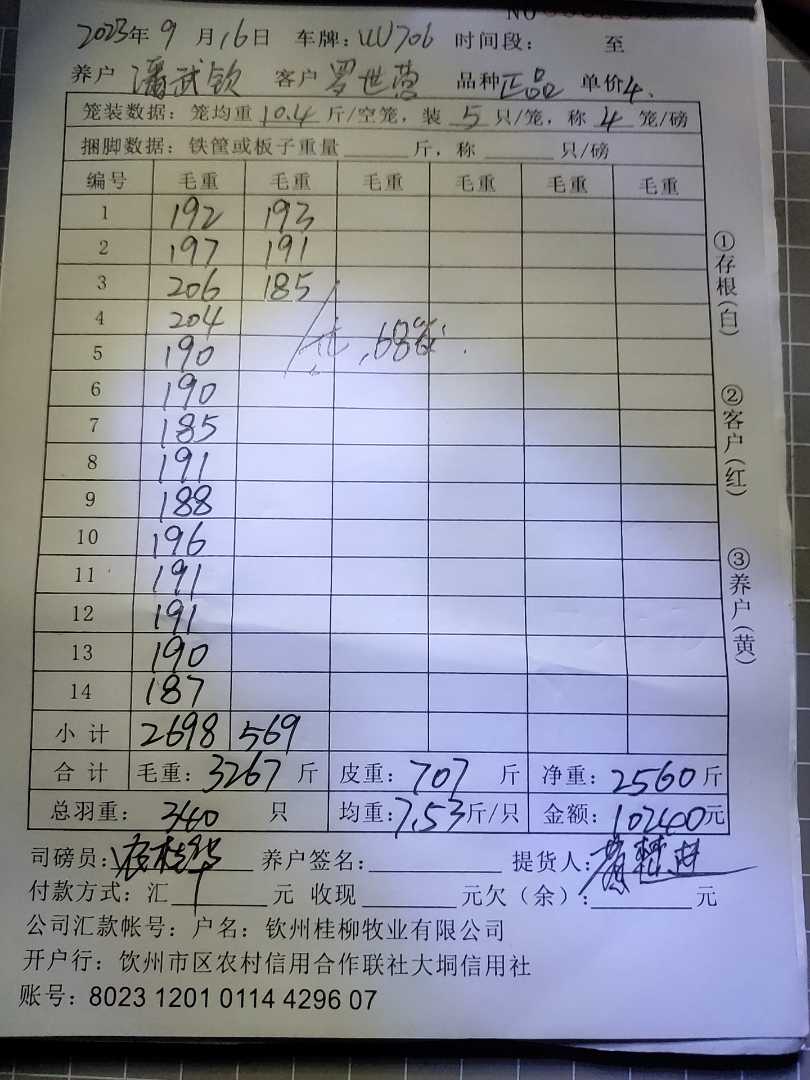 NO
2023年 9 月 16日 车牌: UU706 时间段: 至
养户 潘武钦 客户 罗世营 品种 正品 单价4.
笼装数据: 笼均重 10.4 斤/空笼, 装 5 只/笼, 称 4 笼/磅
捆脚数据: 铁筐或板子重量 斤, 称 只/磅
编号 毛重 毛重 毛重 毛重 毛重 毛重
1 192 193
2 197 191
3 206 185
4 204
5 190 68笼
6 190
7 185
8 191
9 188
10 196
11 191
12 191
13 190
14 187
小计 2698 569
合计 毛重: 3267 斤 皮重: 707 斤 净重: 2560 斤
总羽重: 340 只 均重: 7.53 斤/只 金额: 10240元
司磅员: 养户签名: 提货人:
付款方式: 汇 元 收现 元欠 (余): 元
公司汇款帐号: 户名: 钦州桂柳牧业有限公司
开户行: 钦州市区农村信用合作联社大垌信用社
账号: 8023 1201 0114 4296 07
①存根(白)
②客户(红)
③养户(黄)